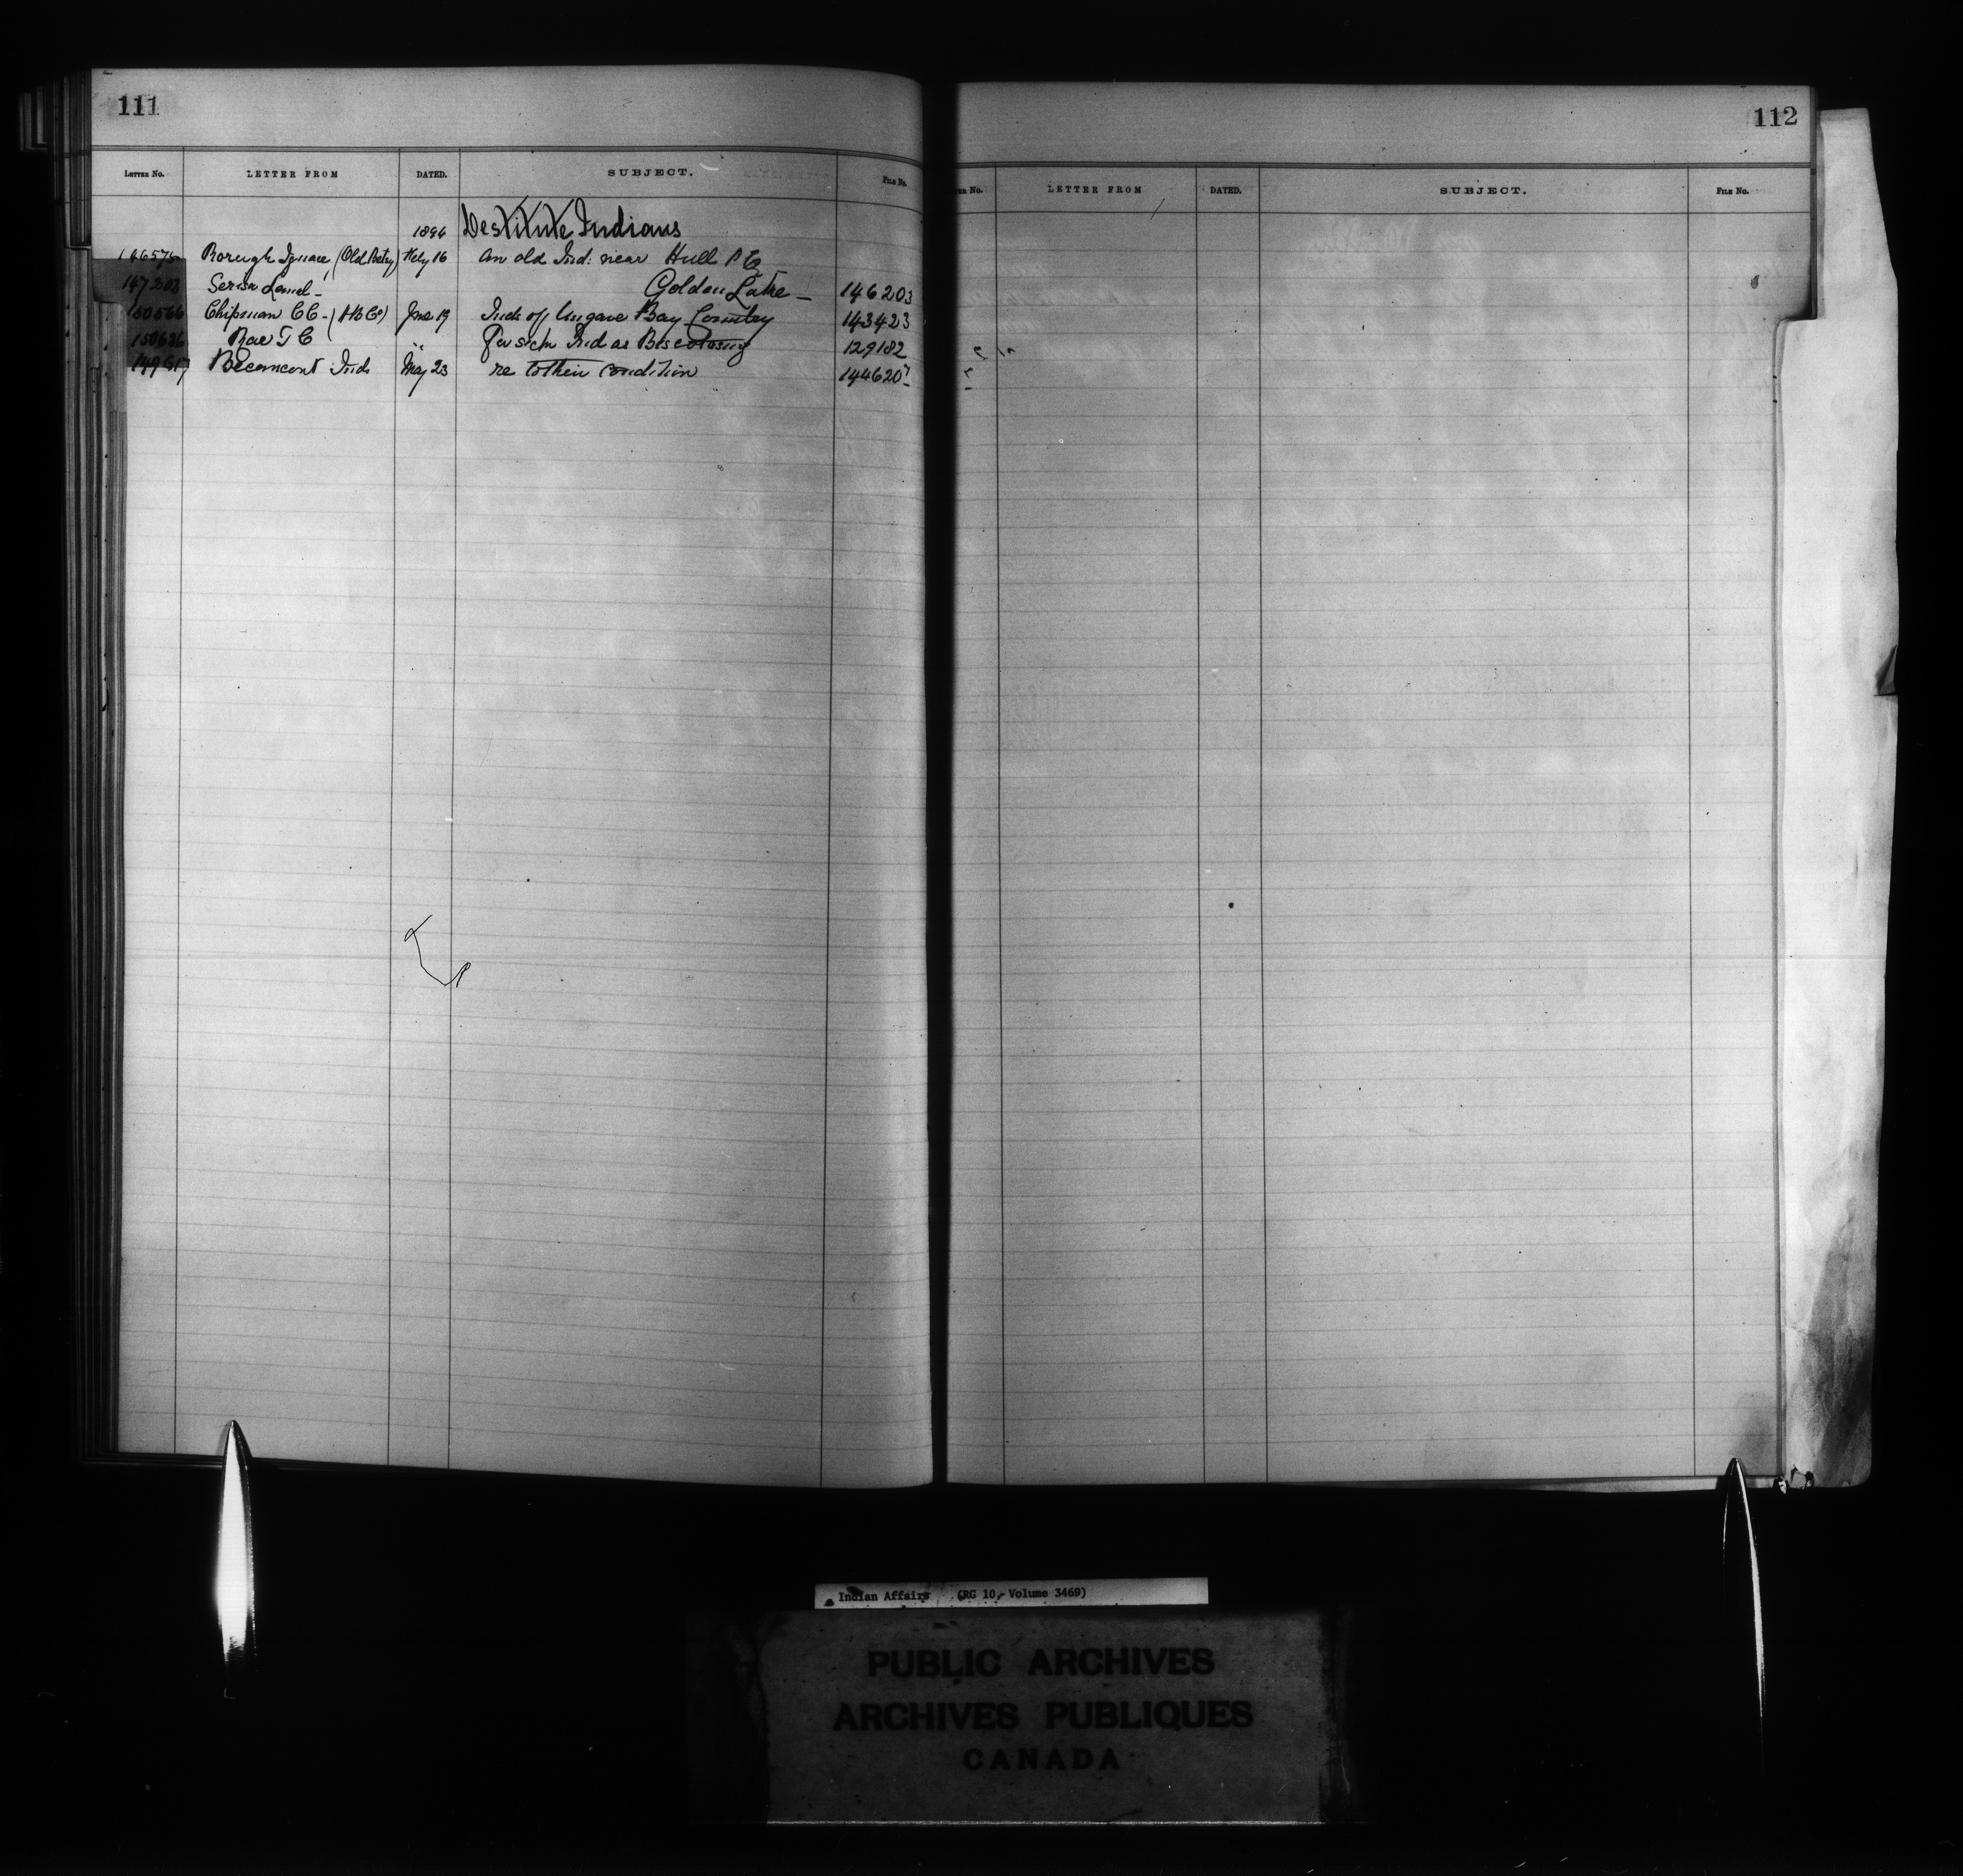 111
LETTER NO. LETTER FROM DATED. SUBJECT. FILE NO.
1894 Destitute Indians
146575 Ignace (Old Betsy) Feby 16 An old Ind: near Hull P Q
147203 Golden Lake — 146203
150566 Chipman C C - (H B Co) June 19 Inds of Ungava Bay Country 143423
150636 Rae T C " Ind as Biscotasing 129182
149617 Becancour Inds May 23 re to their condition 144620
112
NO. LETTER FROM DATED. SUBJECT. FILE NO.
Indian Affairs (RG 10, Volume 3469)
PUBLIC ARCHIVES
ARCHIVES PUBLIQUES
CANADA